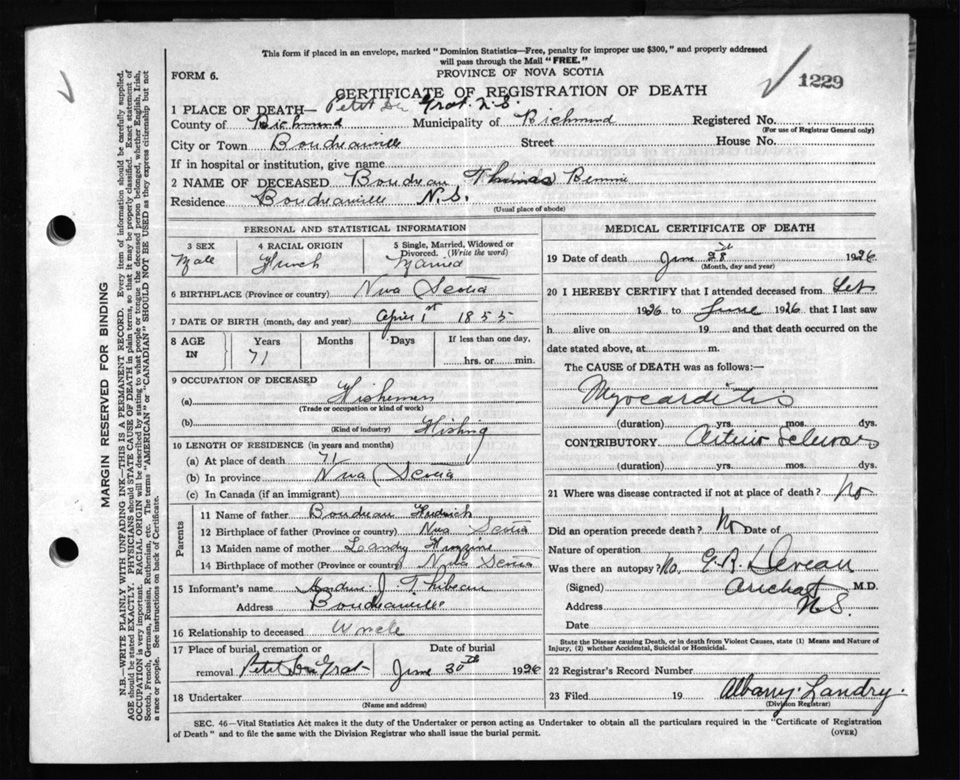 This form if placed in an envelope, marked "Dominion Statistics—Free, penalty for improper use $300," and properly addressed
will pass through the Mail "FREE."
FORM 6.
PROVINCE OF NOVA SCOTIA
1229
CERTIFICATE OF REGISTRATION OF DEATH
1 PLACE OF DEATH— Petit de Grat N.S.
County of Richmond Municipality of Richmond Registered No.
(For use of Registrar General only)
City or Town Boudreauville Street House No.
If in hospital or institution, give name
2 NAME OF DECEASED Boudreau Thomas Bennie
Residence Boudreauville N.S.
(Usual place of abode)
PERSONAL AND STATISTICAL INFORMATION
3 SEX 4 RACIAL ORIGIN 5 Single, Married, Widowed or Divorced. (Write the word)
Male French Married
6 BIRTHPLACE (Province or country) Nova Scotia
7 DATE OF BIRTH (month, day and year) April 1st 1855
8 AGE IN Years Months Days If less than one day,
71 hrs. or min.
9 OCCUPATION OF DECEASED
(a) Fishermen
(Trade or occupation or kind of work)
(b) Fishing
(Kind of industry)
10 LENGTH OF RESIDENCE (in years and months)
(a) At place of death 71
(b) In province Nova Scotia
(c) In Canada (if an immigrant)
Parents
11 Name of father Boudreau
12 Birthplace of father (Province or country) Nova Scotia
13 Maiden name of mother Landry
14 Birthplace of mother (Province or country) Nova Scotia
15 Informant's name J Thibeau
Address Boudreauville
16 Relationship to deceased Uncle
17 Place of burial, cremation or removal Date of burial
Petit de Grat June 30th 1926
18 Undertaker
(Name and address)
MEDICAL CERTIFICATE OF DEATH
19 Date of death June 28 1926
(Month, day and year)
20 I HEREBY CERTIFY that I attended deceased from
1926 to June 1926 that I last saw
h alive on 19 and that death occurred on the
date stated above, at m.
The CAUSE of DEATH was as follows:—
Myocarditis
(duration) yrs. mos. dys.
CONTRIBUTORY
(duration) yrs. mos. dys.
21 Where was disease contracted if not at place of death? No
Did an operation precede death? No Date of
Nature of operation
Was there an autopsy? No.
(Signed) M.D.
Address Arichat N.S.
Date
State the Disease causing Death, or in death from Violent Causes, state (1) Means and Nature of
Injury, (2) whether Accidental, Suicidal or Homicidal.
22 Registrar's Record Number
23 Filed 19 Albany Landry.
(Division Registrar)
SEC. 46—Vital Statistics Act makes it the duty of the Undertaker or person acting as Undertaker to obtain all the particulars required in the "Certificate of Registration
of Death" and to file the same with the Division Registrar who shall issue the burial permit.
(OVER)
MARGIN RESERVED FOR BINDING
N.B.—WRITE PLAINLY WITH UNFADING INK—THIS IS A PERMANENT RECORD. Every item of information should be carefully supplied.
AGE should be stated EXACTLY. PHYSICIANS should STATE CAUSE OF DEATH in plain terms, so that it may be properly classified. Exact statement of
OCCUPATION is very important. RACIAL ORIGIN will be described by stating to what people or tongue the deceased person belonged, whether English, Irish,
Scotch, French, German, Russian, Ruthenian, etc. The terms "AMERICAN" or "CANADIAN" SHOULD NOT BE USED as they express citizenship but not
a race or people. See instructions on back of Certificate.